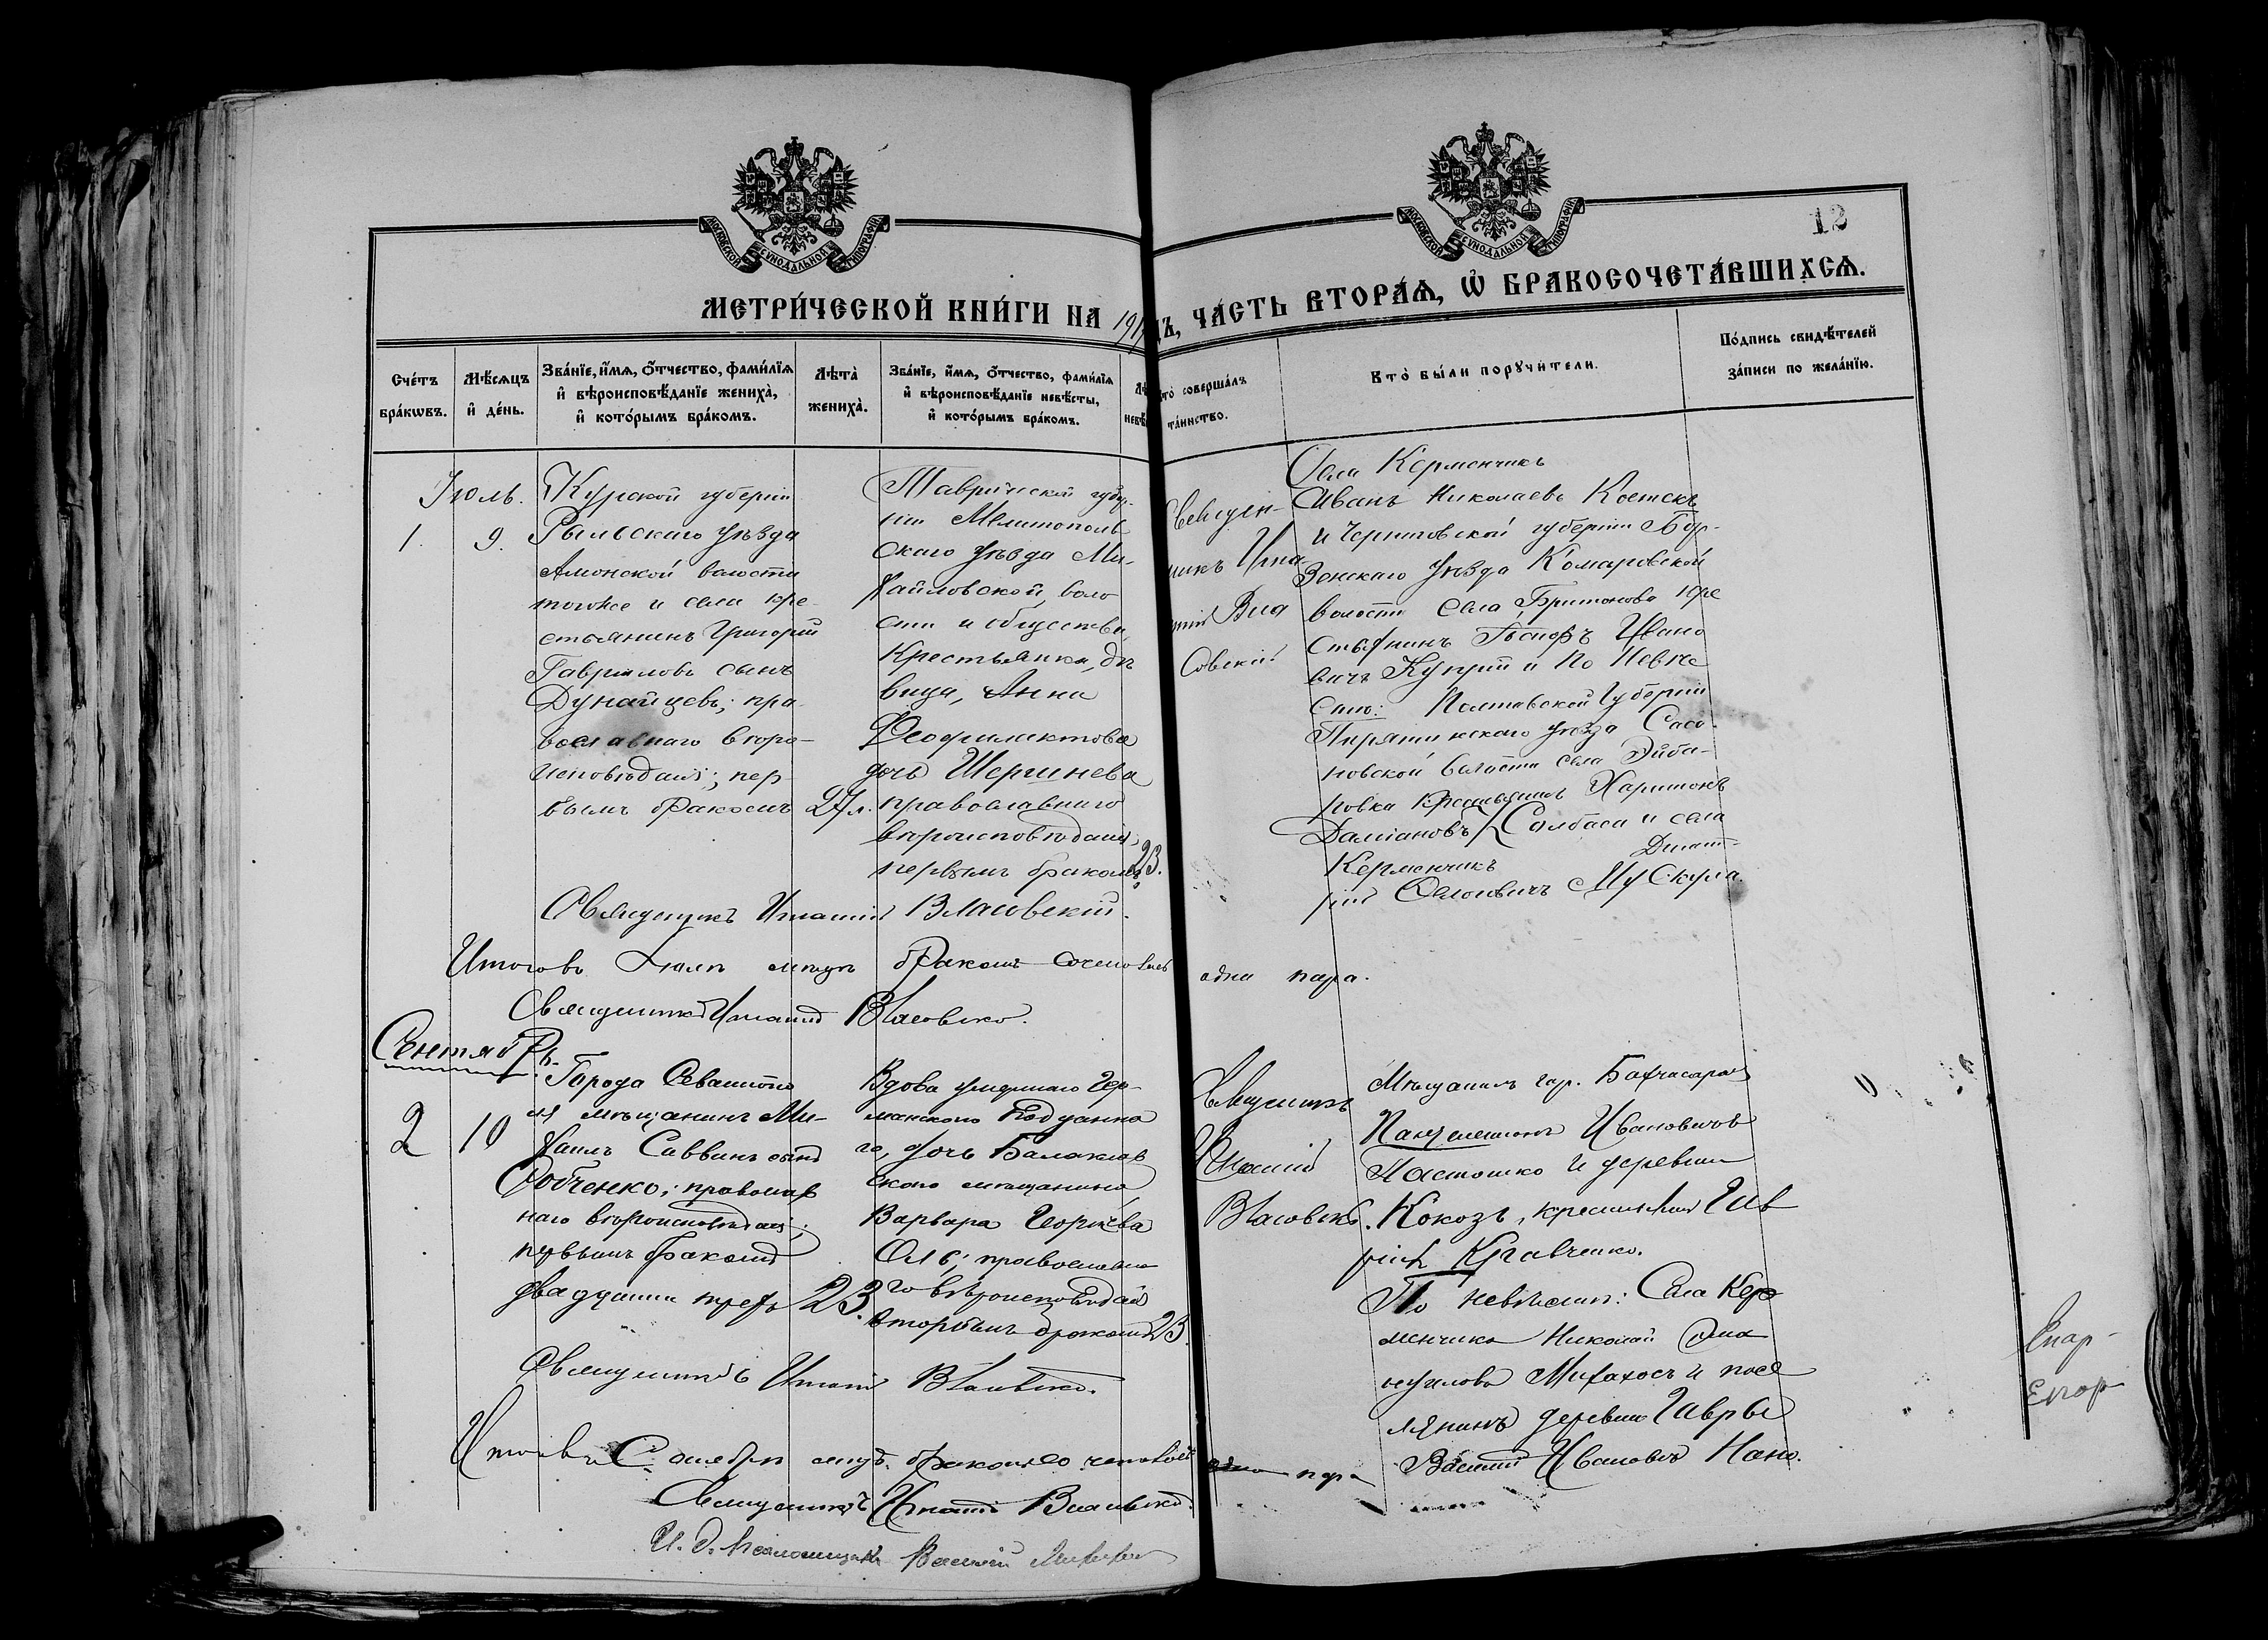 МОСКОВСКОЙ СѴНОДАЛЬНОЙ ТИПОГРАФІИ
МОСКОВСКОЙ СѴНОДАЛЬНОЙ ТИПОГРАФІИ
12
МЕТРИ́ЧЕСКОЙ КНИ́ГИ НА 191
ЧА́СТЬ ВТОРА́Ѧ, Ѡ҆ БРАКОСОЧЕТА́ВШИХСѦ.
Сче́тъ бра́кѡвъ.
Мѣ́сѧцъ и҆ де́нь.
Зва́нїе, и҆́мѧ, ѻ҆́тчество, фами́лїѧ
и҆ вѣроисповѣ́данїе жениха̀,
и҆ кото́рымъ бра́комъ.
Лѣта̀ жениха̀.
Зва́нїе, и҆́мѧ, ѻ҆́тчество, фами́лїѧ
и҆ вѣроисповѣ́данїе невѣ́сты,
и҆ кото́рымъ бра́комъ.
совершалъ
та́инство.
Кто̀ бы́ли порꙋчи́тели.
По́дпись свидѣ́телей
за́писи по жела́нїю.
Іюль.
1.
9.
Курской губерніи
Рыльскаго уѣзда
Амонской волости
тогоже и села кре-
стьянинъ Григорій
Гавріиловъ сынъ
Дунайцевъ; пра-
вославнаго вѣро-
исповѣданія; пер-
вымъ бракомъ
27 л.
Таврической губер-
ніи Мелитополь
скаго уѣзда Ми-
хайловской, воло
сти и общества,
Крестьянка, дѣ
вица, Анна
Феофилактова
дочь Шергинева
православнаго
вѣроисповѣданія,
первымъ бракомъ
23.
Священ-
никъ Игна
тій Вла
совскій
Села Керменчикъ
Иванъ Николаевъ
и Черниговской губерніи Бор-
зенскаго уѣзда Комаровской
волости села кре
стьянинъ Іосифъ Ивано
вичъ Куприй и По Невѣ
стѣ: Полтавской Губерніи
Пирятинскаго уѣзда Сасо-
новской волости села
крестьянинъ Харитонъ
Даміановъ и села
Керменчикъ Димит-
рій Мускура.
Священникъ Игнатій Власовскій.
Итого въ Іюлѣ мѣсяцѣ бракомъ сочеталась одна пара.
Священникъ Игнатій Власовскій.
Сентябрь.
2
10
Города Севастопо
ля мѣщанинъ Ми-
хаилъ Саввинъ сынъ
православ
наго вѣроисповѣданія;
первымъ бракомъ
двадцати трехъ
23.
Вдова умершаго Гер-
манскаго Подданна
го, дочь Балаклав
скаго мѣщанина
Варвара Георгіева
православна
го вѣроисповѣданія
вторымъ бракомъ
23
Священникъ
Игнатій
Власовскій.
Мѣщанинъ гор. Бахчисарая
Пантелеимонъ Ивановичъ
Пастошко и деревни
Кокозъ, крестьянинъ Гав
ріилъ Кравченко.
По невѣстѣ: Села Кер
менчика Николай
и посе
лянинъ деревни Гавры
Василій Ивановъ
Священникъ Игнатій Власовскій.
Итого въ Сентябрѣ мѣс. бракомъ сочеталась одна пара
Священникъ Игнатій Власовскій.
И. д. Псаломщика Василій
Епар-
Епар